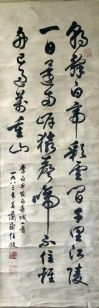 朝辞白帝彩雲間千里江陵
一日還两岸猿聲啼不住軽
舟已過萬重山
李白早发白帝城一首
一九八三年